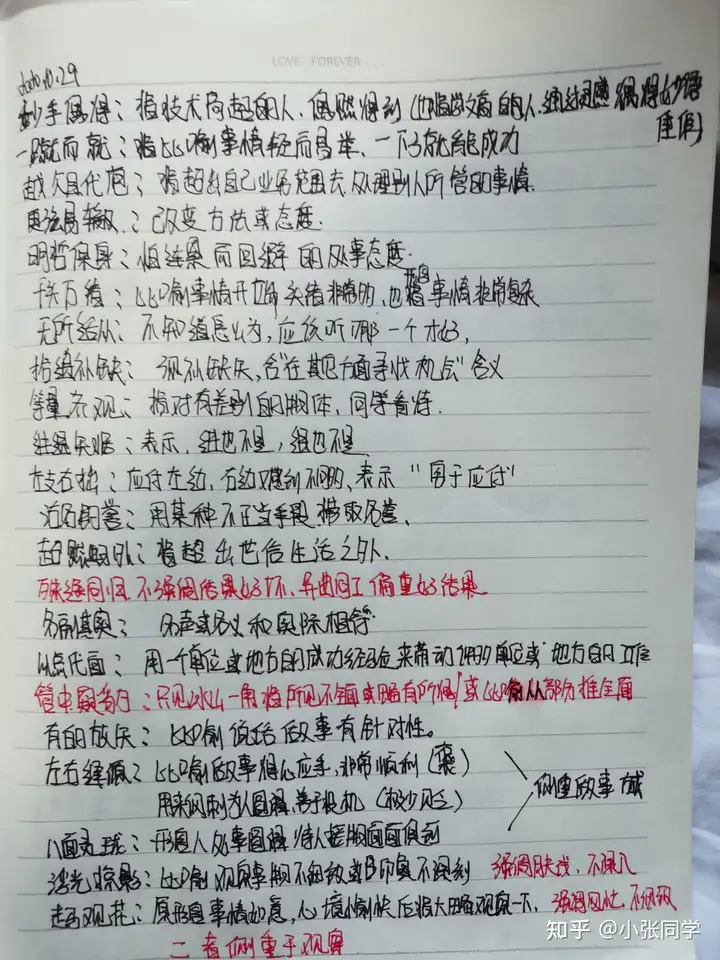 LOVE FOREVER...
2020.10.29
妙手偶得：指技术高超的人，偶然得到（也指学文高的人，通过灵感偶得妙语佳句）
一蹴而就：指比喻事情轻而易举，一下子就能成功
越俎代庖：指超出自己业务范围去处理别人所管的事情.
更弦易辙：已改变方法或态度.
明哲保身：怕连累而回避的处事态度.
千头万绪：比喻事情开立的头绪非常多，也形容事情非常复杂
无所适从：不知道怎么办，应该听哪一个才好，
拾遗补缺：弥补缺失，含"在其它方面寻找机会"含义
等量齐观：指对有差别的物体，同等看待.
进退失据：表示，进也不是，退也不是
左支右拙：应付左边，右边又感到不够，表示"穷于应付"
沽名钓誉：用某种不正当手段，捞取名誉.
超然物外：指超出世俗生活之外.
殊途同归 不强调结果好坏、异曲同工 偏重好结果
名副其实：名声或名义和实际相符
以点代面：用一个单位或地方的成功经验来带动许多单位或地方的工作
管中窥豹：只见 一角 指所见不全面或略有所得/或比喻从部分推全面
有的放矢：比喻说话做事有针对性。
左右逢源：比喻做事得心应手，非常顺利（褒）
用来讽刺为人圆滑，善于投机（极少贬）
侧重做事 或
八面玲珑：形容人处事圆滑 待人接物面面俱到
浮光掠影：比喻观察事物不细致或印象不深刻 强调 不深入
观花：原形容事情如意，心境愉快后指大略观察一下， 强调 不细致
二者侧重于观察
知乎 @小张同学